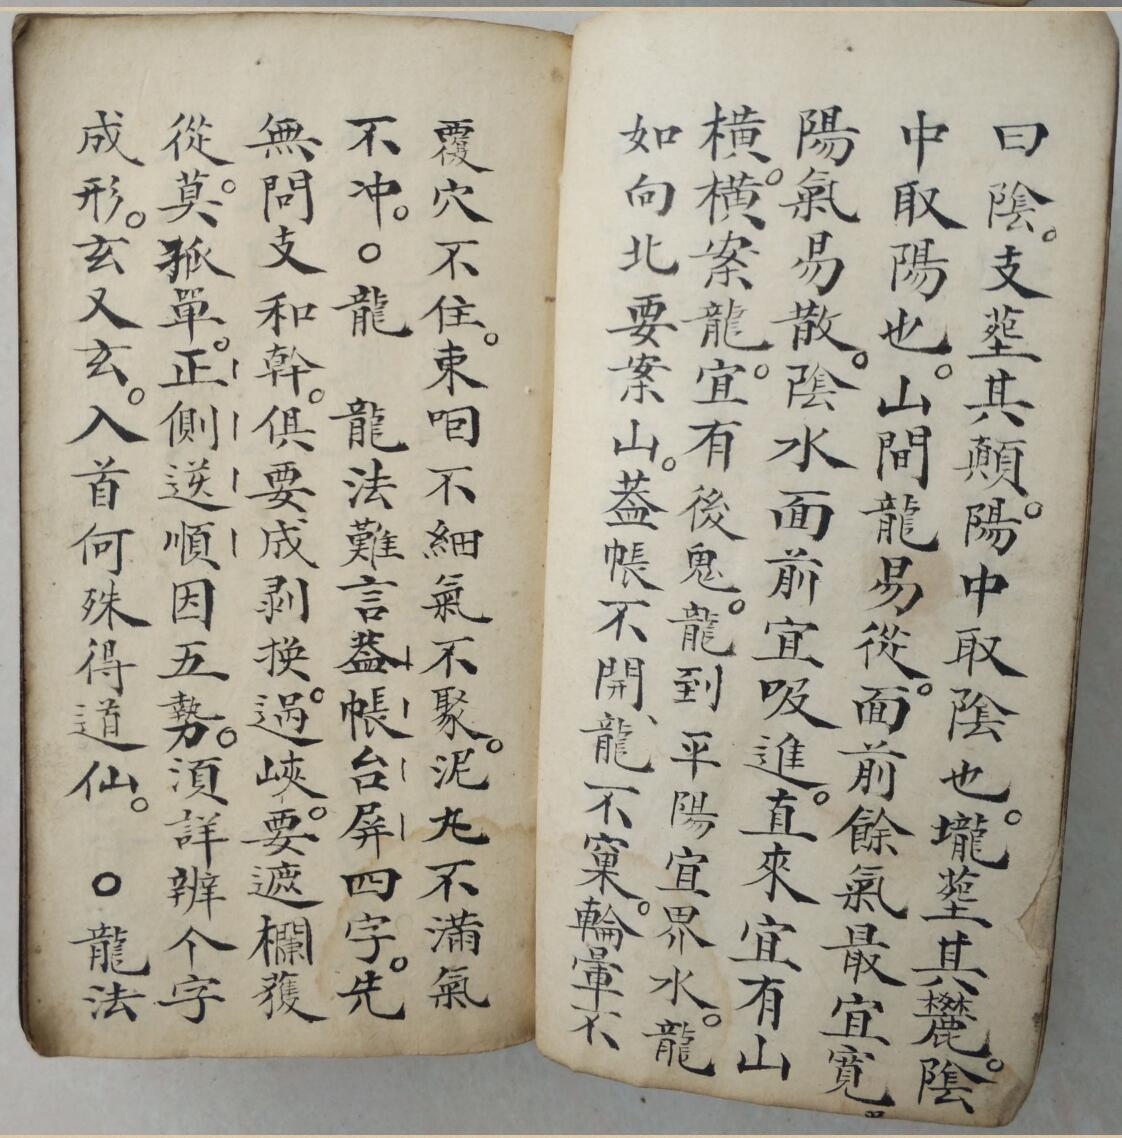 曰陰。支塟其顛。陽中取陰也。壠塟其麓。陰
中取陽也。山間龍易從。面前餘氣最宜寬
陽氣易散。陰水面前宜吸進。直來宜有山
橫。橫案龍。宜有後鬼。龍到平陽宜界水。龍
如向北要案山。蓋帳不開龍不窠。輪暈不
覆穴不住。東咽不細氣不聚。泥丸不滿氣
不冲。○龍 龍法難言蓋帳台屏四字。先
無問支和幹。俱要成剥換。過峽。要遮欄獲
從。莫孤單。正側逆順因五勢。須詳辨个字
成形。玄又玄。入首何殊得道仙。○龍法